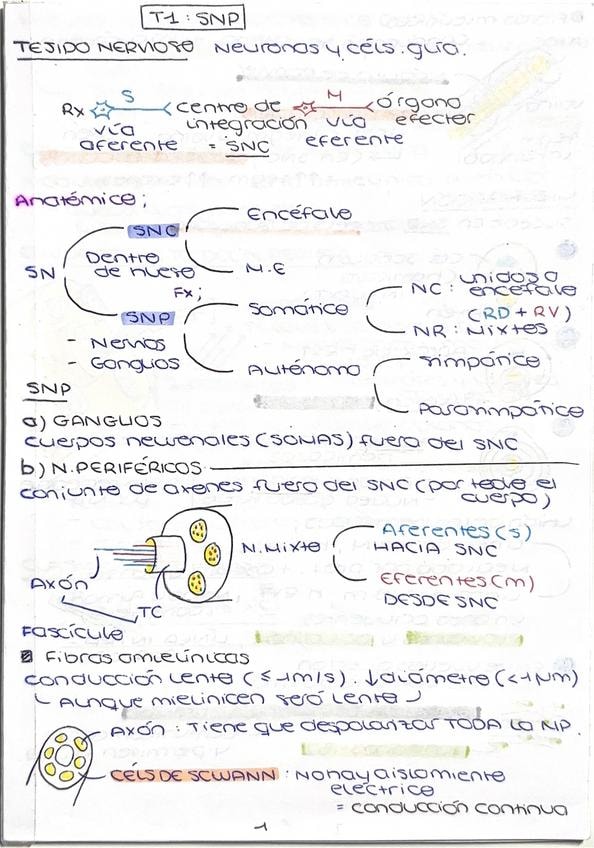 T-1: SNP
TEJIDO NERVIOSO Neuronas y céls. glia.
S M
Rx centro de órgano
vía integración vía efector
aferente = SNC eferente
Anatómico;
Encéfalo
SNC
SN Dentro de hueso M.E
Fx; NC: unidos a encéfalo
Somático (RD + RV)
SNP NR: Mixtos
- Nervios
- Ganglios Autónomo Simpático
SNP Parasimpático
a) GANGLIOS
cuerpos neuronales (SOMAS) fuera del SNC
b) N. PERIFÉRICOS
conjunto de axones fuera del SNC (por todo el
cuerpo)
Aferentes (s)
N. Mixto HACIA SNC
Eferentes (m)
Axón DESDE SNC
TC
Fascículo
Fibras amielínicas
conducción lenta (≤ 1m/s). ↓ diámetro (<1 μm)
Aunque mielinicen será lento
Axón: Tiene que despolarizar TODA la MP.
CÉLS DE SCWANN: No hay aislamiento
eléctrico
= conducción continua
1